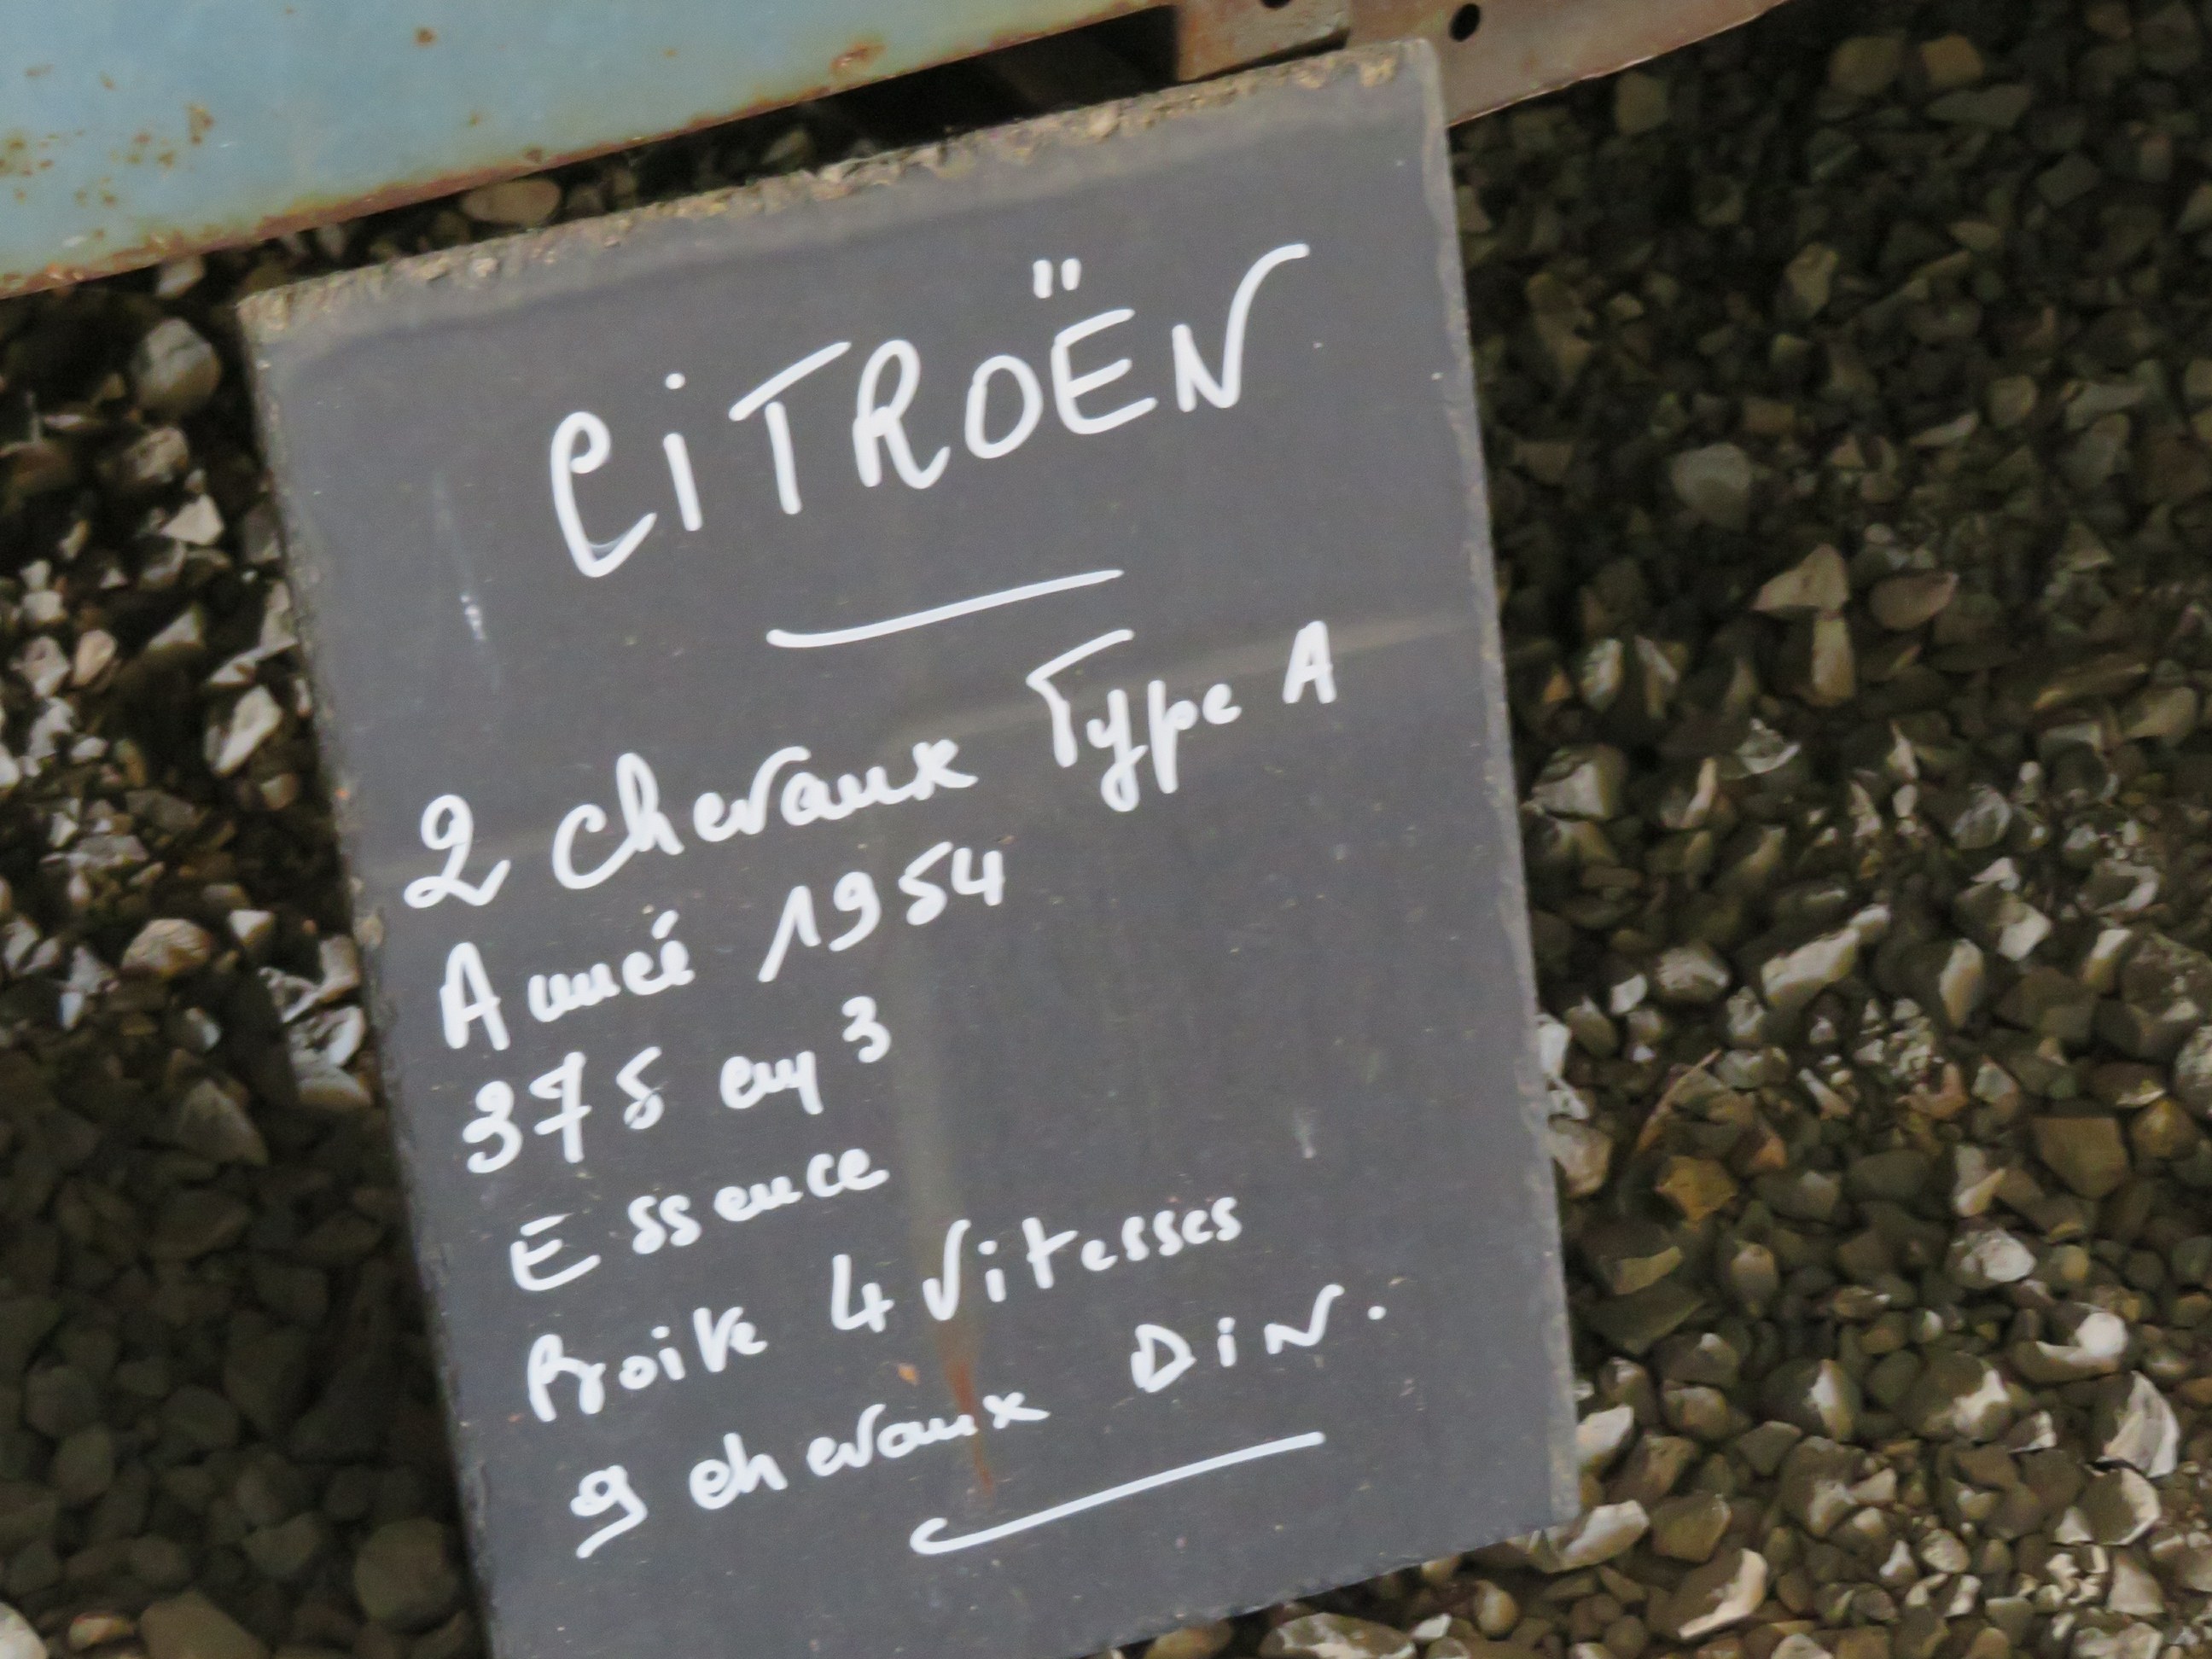 CiTROËN
2 chevaux Type A
Année 1954
375 cm3
Essence
Boite 4 Vitesses
9 chevaux DiN.